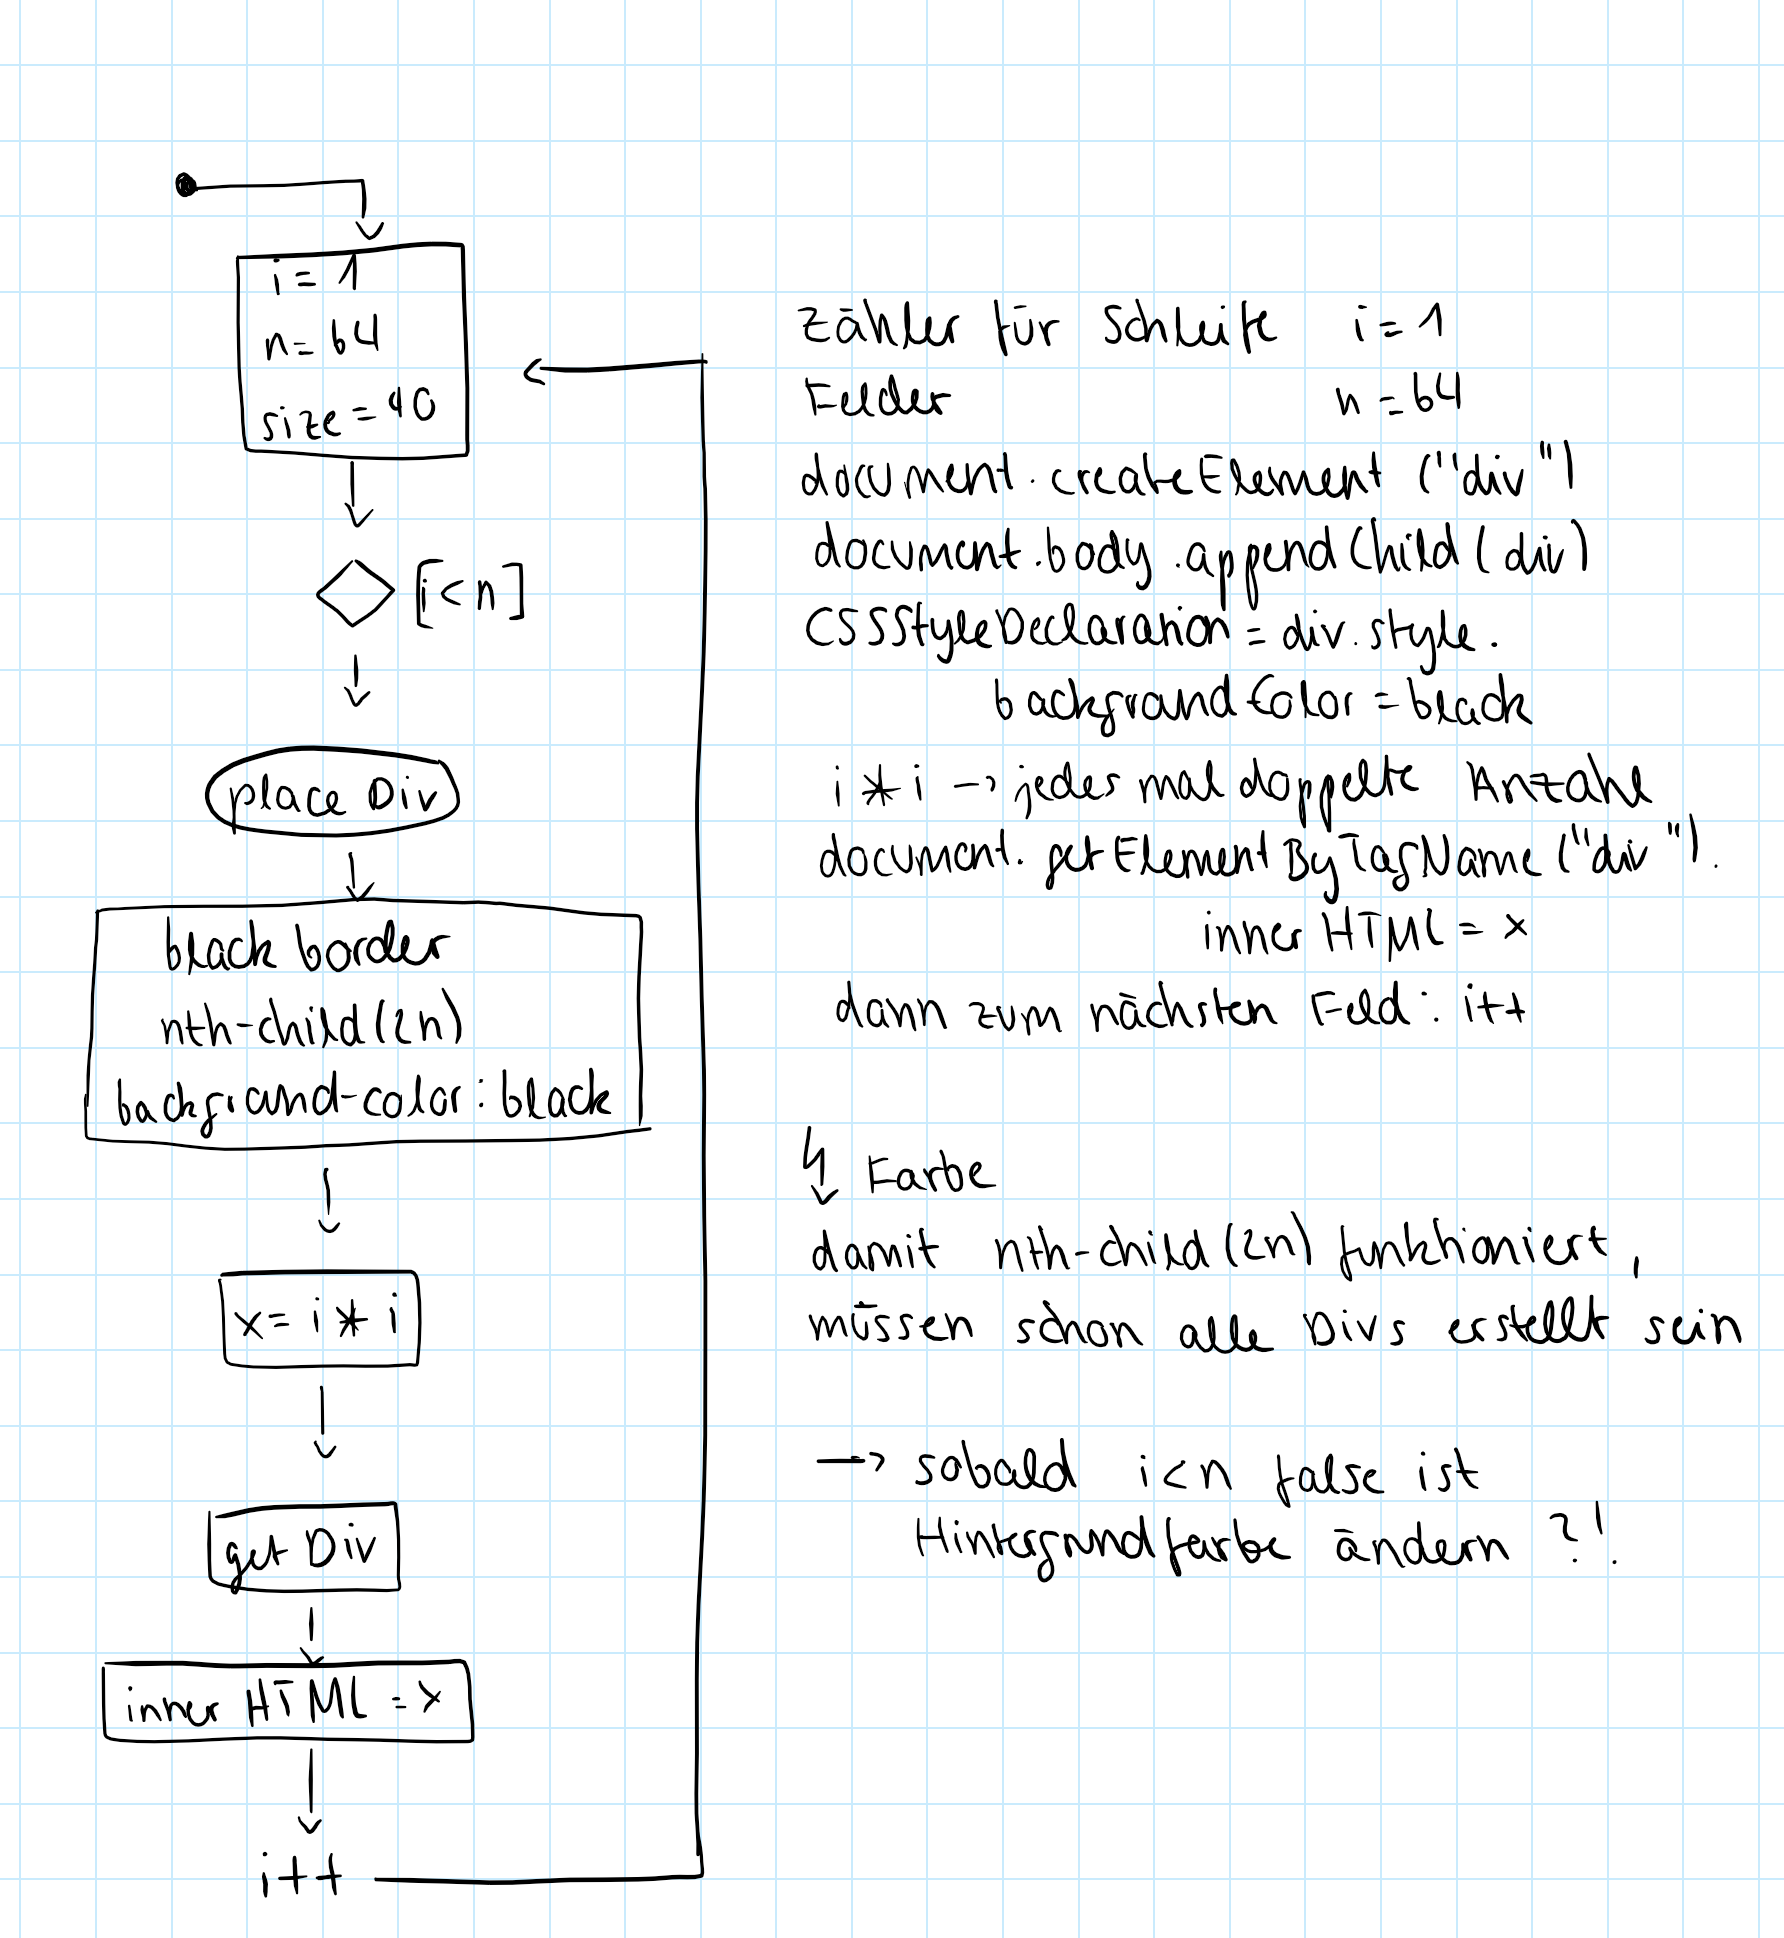 i = 1
n = 64
size = 40
[i < n]
place Div
black border
nth-child(2n)
background-color: black
x = i * i
get Div
inner HTML = x
i++
Zähler für Schleife i = 1
Felder n = 64
document.createElement("div")
document.body.appendChild(div)
CSSStyleDeclaration = div.style.
backgroundColor = black
i * i → jedes mal doppelte Anzahl
document.getElementByTagName("div").
inner HTML = x
dann zum nächsten Feld: i++
Farbe
damit nth-child(2n) funktioniert,
müssen schon alle Divs erstellt sein
→ sobald i<n false ist
Hintergrundfarbe ändern ?!